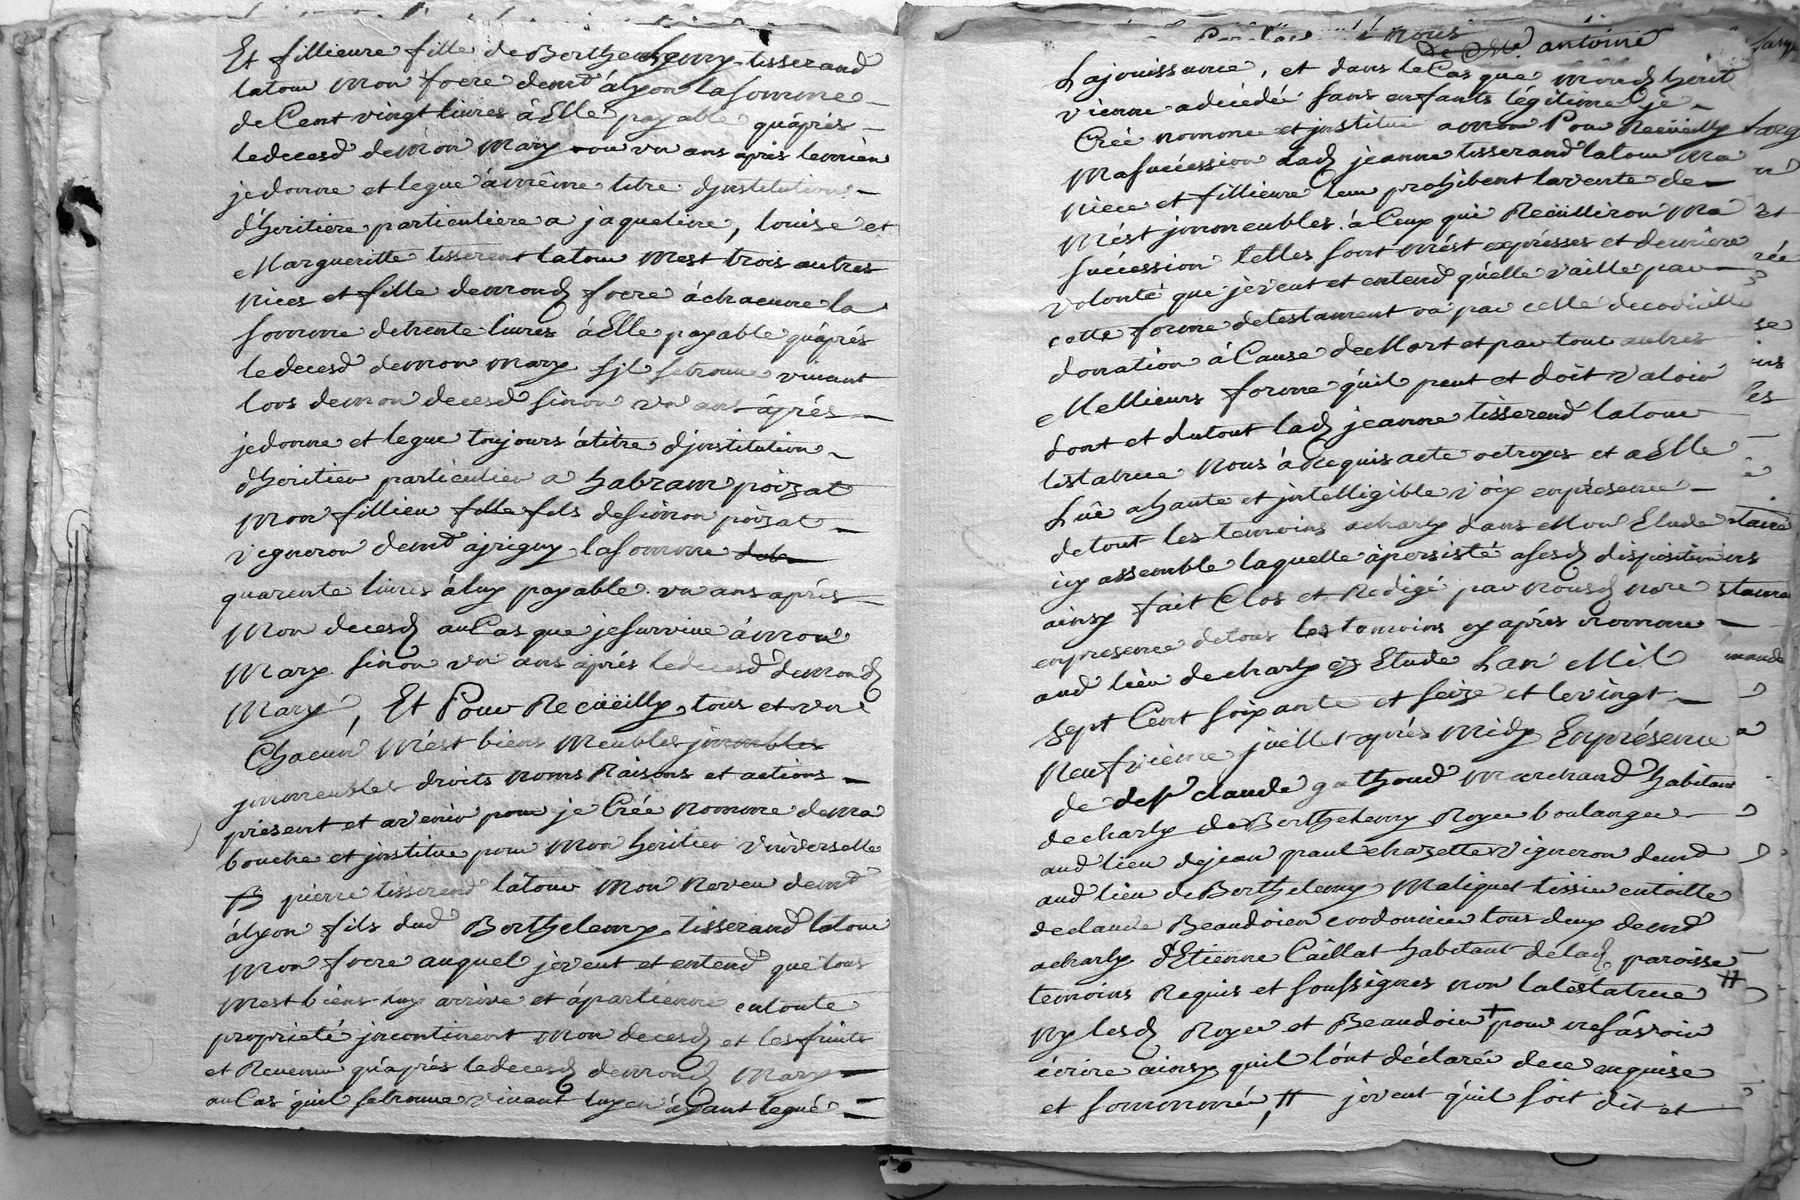 Et fillieure fille de Berthelemy tisserand
latour mon frere demt à lyon la somme
de Cent vingt livres à Elle payable qu'àprés
le decesd de mon mary ou un ans aprés le mien
je donne et legue à même titre d'jnstitution
d'heritiere particuliere a jaqueline, louise et
Margueritte tisserent latour mest trois autres
nices et fille de mond frere à chacune la
somme de trente livres à Elle payable qu'àprés
le decesd de mon mary sjl se trouve vivant
lors de mon decesd sinon un ans àprés
je donne et legue toujours à titre d'jnstitution
d'heritier particulier a habram poizat
mon fillieu fille fils de simon poizat
vigneron demt a jrigny la somme de la
quarente livres à luy payable un ans aprés
mon decesd au Cas que je survive à mon
mary sinon un ans àprés le decesd de mond
mary, Et Pour Recüeilly tous et un
Chacun mést biens meubles jmeubles
jmmeubles droits noms Raisons et actions
présent et avenir pour je Créé nomme de ma
bouche et jnstitue pour mon heritier universelle
pierre tisserend latour mon neveu demt
à lyon fils dud Berthelemy tisserand latour
mon frere auquel je veut et entend que tous
mest biens luy arrive et àpartienne en toute
proprieté jncontinent mon decesd et les fruits
et Revenu qu'àprés le decesd de mond mary
au Cas qu'il se trouve vivant luy en àyant legué
la jouissance, et dans le Cas que mond herit
vienne a decédé sans enfants légitime je
Créé nomme et jnstitue a mon Pour Recüeilly
ma sucéession lad jeanne tisserand latour ma
niece et fillieure leur prohibent la vente de
mést jmmeubles à Ceux qui Recüilliron ma
sucéession telles sont mést expresses et derniere
volonté que je veut et entend qu'elle vaille par
cette forme de testament ou par celle de codicille
donnation à Cause de Mort et par tout autres
Mellieurs forme qu'il peut et doit valoir
dont et du tout lad jeanne tisserend latour
testatrice nous à Requis acte octroyes et a Elle
Luë a haute et jntelligible voix en présence
de tout les temoins a charly dans Mon Etude
icy assemble laquelle à persisté a sesd dispositions
ainsy fait Clos et Redigé par nousd nore
en presence de tous les temoins cy aprés nomme
aud lieu de charly Etude Lan Mil
sept Cent soixante et seize et le vingt
neufvieme juillet aprés midy En présence
de claude gathoud marchand habitant
de charly de Berthelemy Royer boulanger
aud lieu de jean paul chazette vigneron demt
aud lieu de Berthelemy Maliguet tissieur en toille
de claude Beaudoien cordonnier tous deux demt
a charly d'Etienne Caillat habitant de lad paroisse
temoins Requis et soussignes non la testatrice #
ny lesd Royer et Beaudoien + pour ne sávoir
écrire ainsy quil lont déclaréé de ce enquise
et sommméé, # je veut qu'il soit dit et